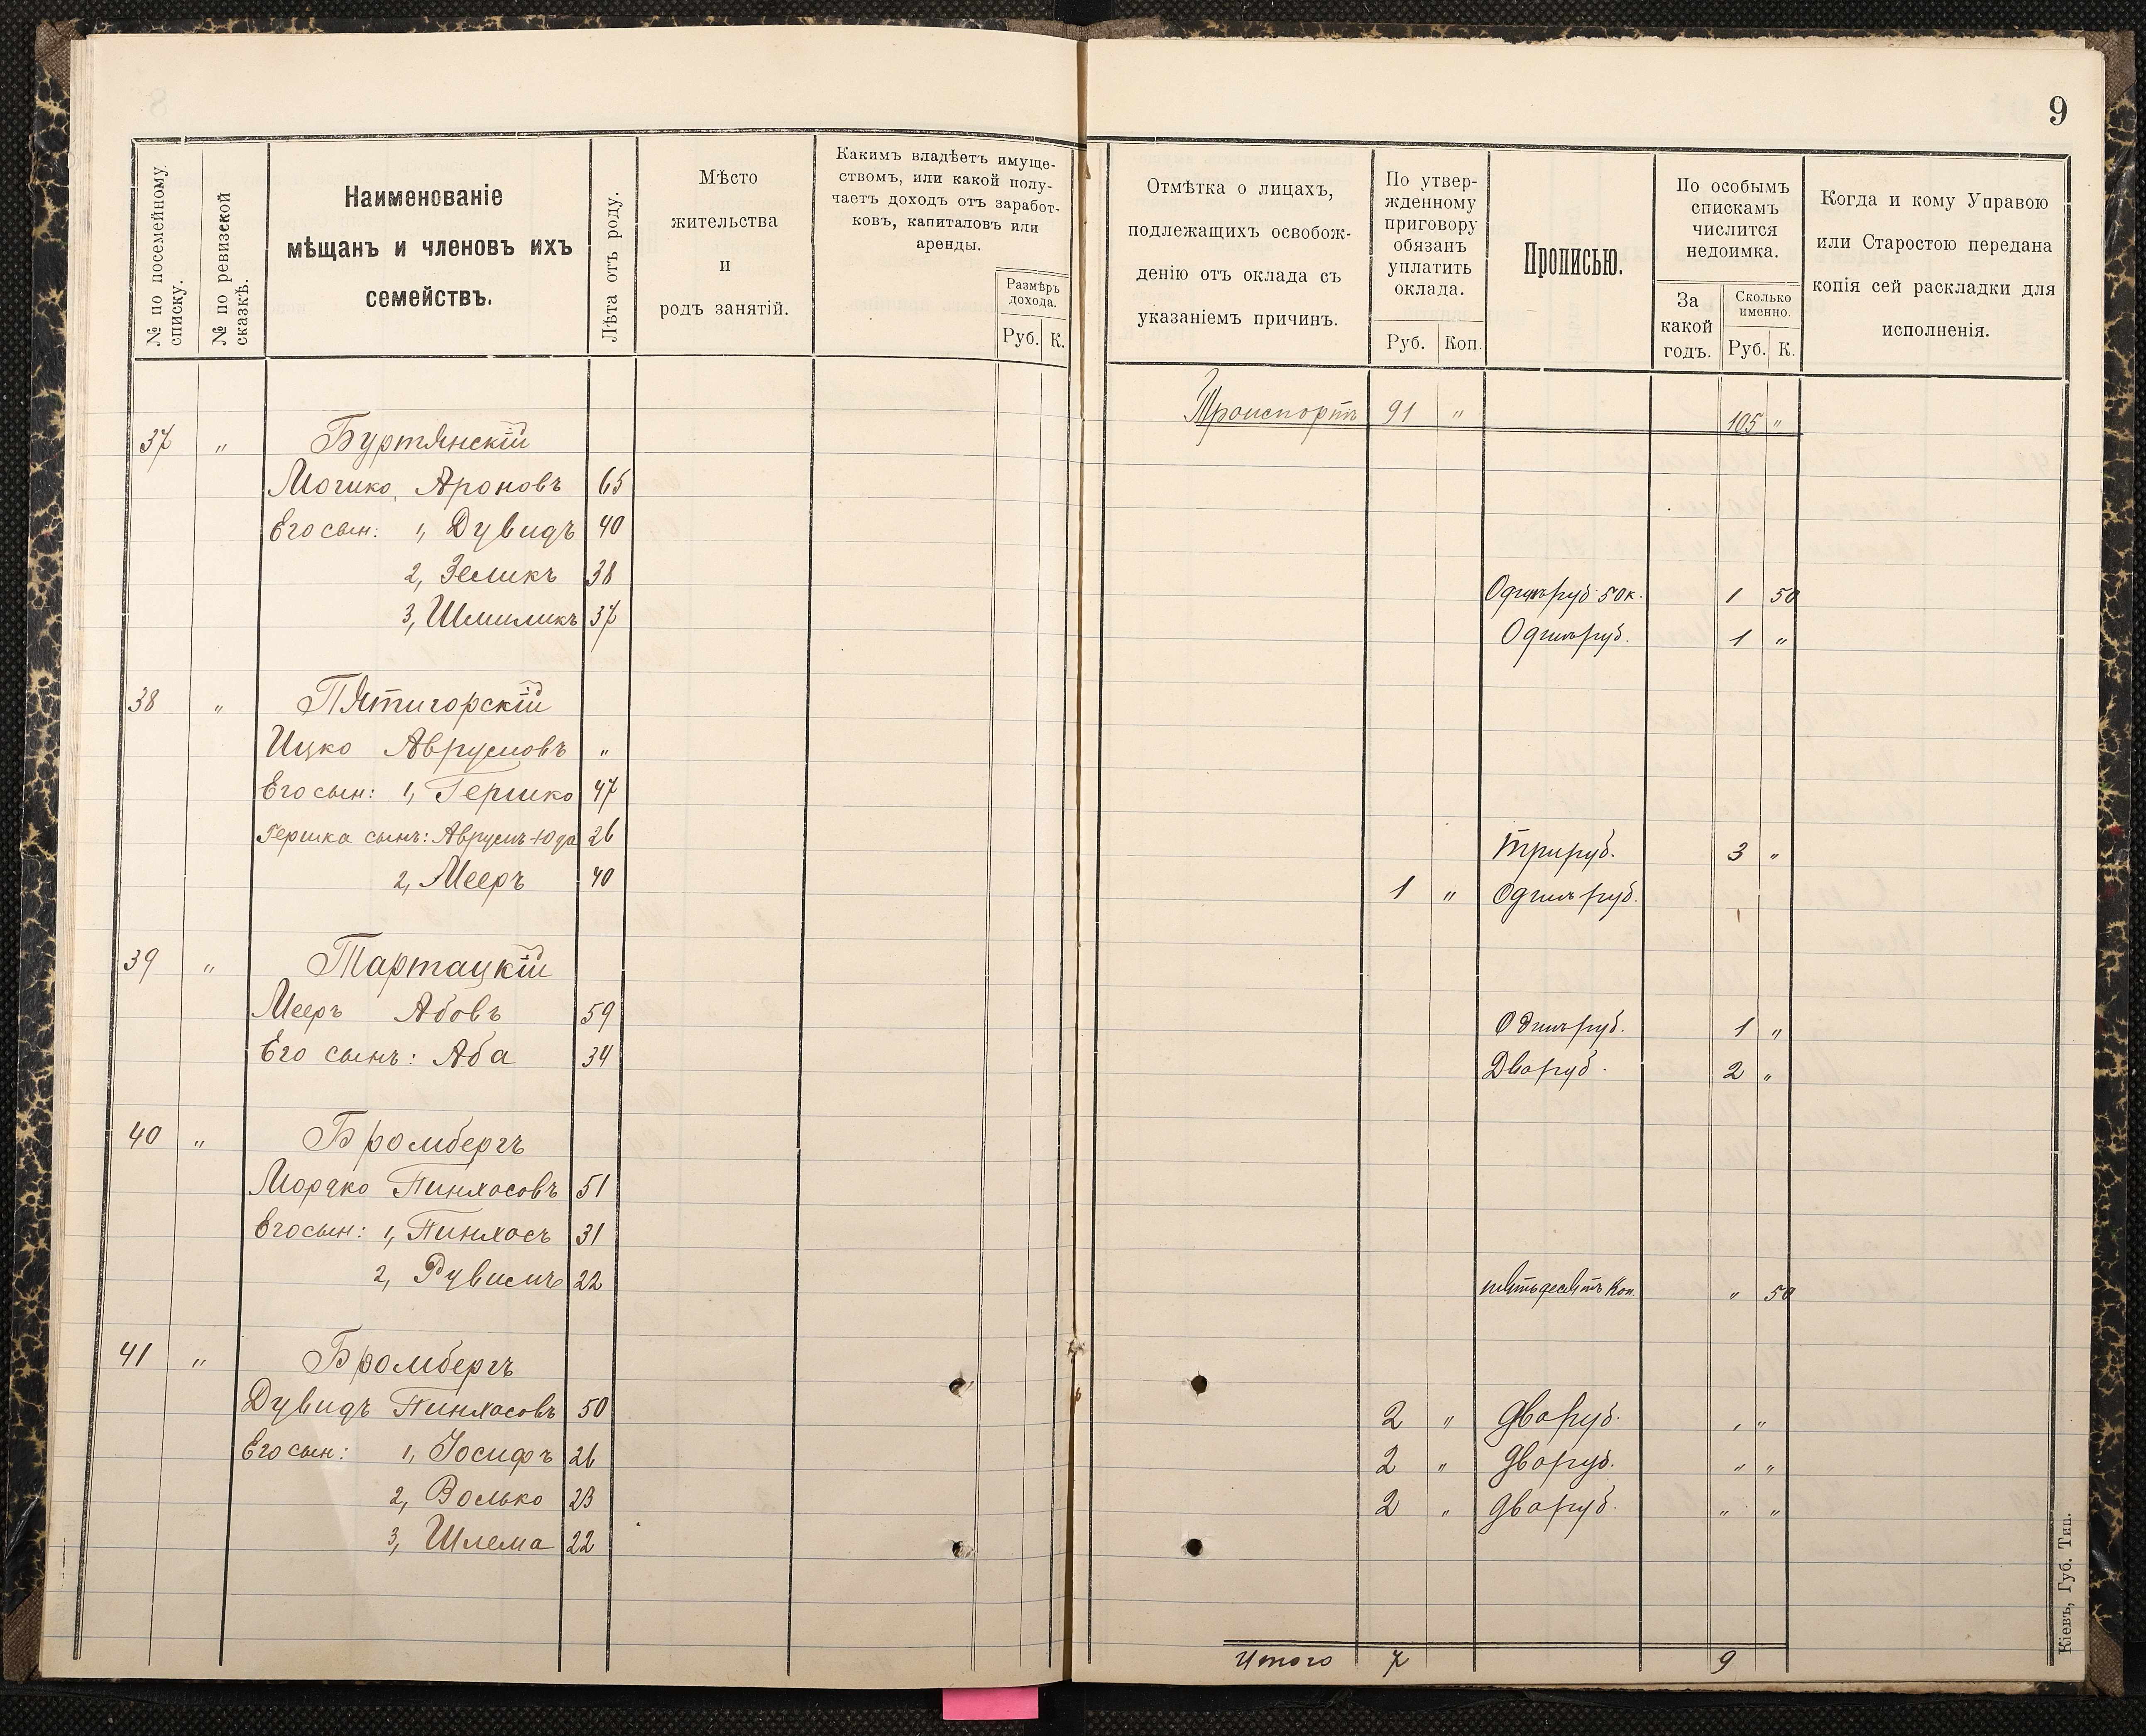 9
№ по посемейному списку.
№ по ревизской сказкѣ.
Наименованіе
мѣщанъ и членовъ ихъ
семействъ.
Лѣта отъ роду.
Мѣсто
жительства
и
родъ занятій.
Какимъ владѣетъ имуще-
ствомъ, или какой полу-
чаетъ доходъ отъ заработ-
ковъ, капиталовъ или
аренды.
Размѣръ
дохода.
Руб. К.
Отмѣтка о лицахъ,
подлежащихъ освобож-
денію отъ оклада съ
указаніемъ причинъ.
По утвер-
жденному
приговору
обязанъ
уплатить
оклада.
Руб. Коп.
Прописью.
По особымъ
спискамъ
числится
недоимка.
За
какой
годъ.
Сколько
именно.
Руб. К.
Когда и кому Управою
или Старостою передана
копія сей раскладки для
исполненія.
Транспортъ 91 " 105 "
37 " Буртянскій
Мошко Ароновъ 65
Его сын: 1, Дувидъ 40
2, Зеликъ 38 Одинъ руб 50 к. 1 50
3, Шмиликъ 37 Одинъ руб. 1 "
38 " Пятигорскій
Ицко Аврумовъ "
Его сын: 1, Гершко 47
Гершка сынъ: Аврумъ-Юда 26 Три руб. 3 "
2, Мееръ 40 1 " Одинъ руб.
39 " Тартацкій
Мееръ Абовъ 59 Одинъ руб. 1 "
Его сынъ: Аба 34 Два руб. 2 "
40 " Бромбергъ
Мордко Пинхасовъ 51
Его сын: 1, Пинхасъ 31
2, Рувимъ 22 пятьдесятъ Коп. " 50
41 " Бромбергъ
Дувидъ Пинхасовъ 50 2 " Два руб. " "
Его сын: 1, Іосифъ 26 2 " Два руб. " "
2, Волько 23 2 " Два руб. " "
3, Шлема 22
Итого 7 9
Кіевъ, Губ. Тип.